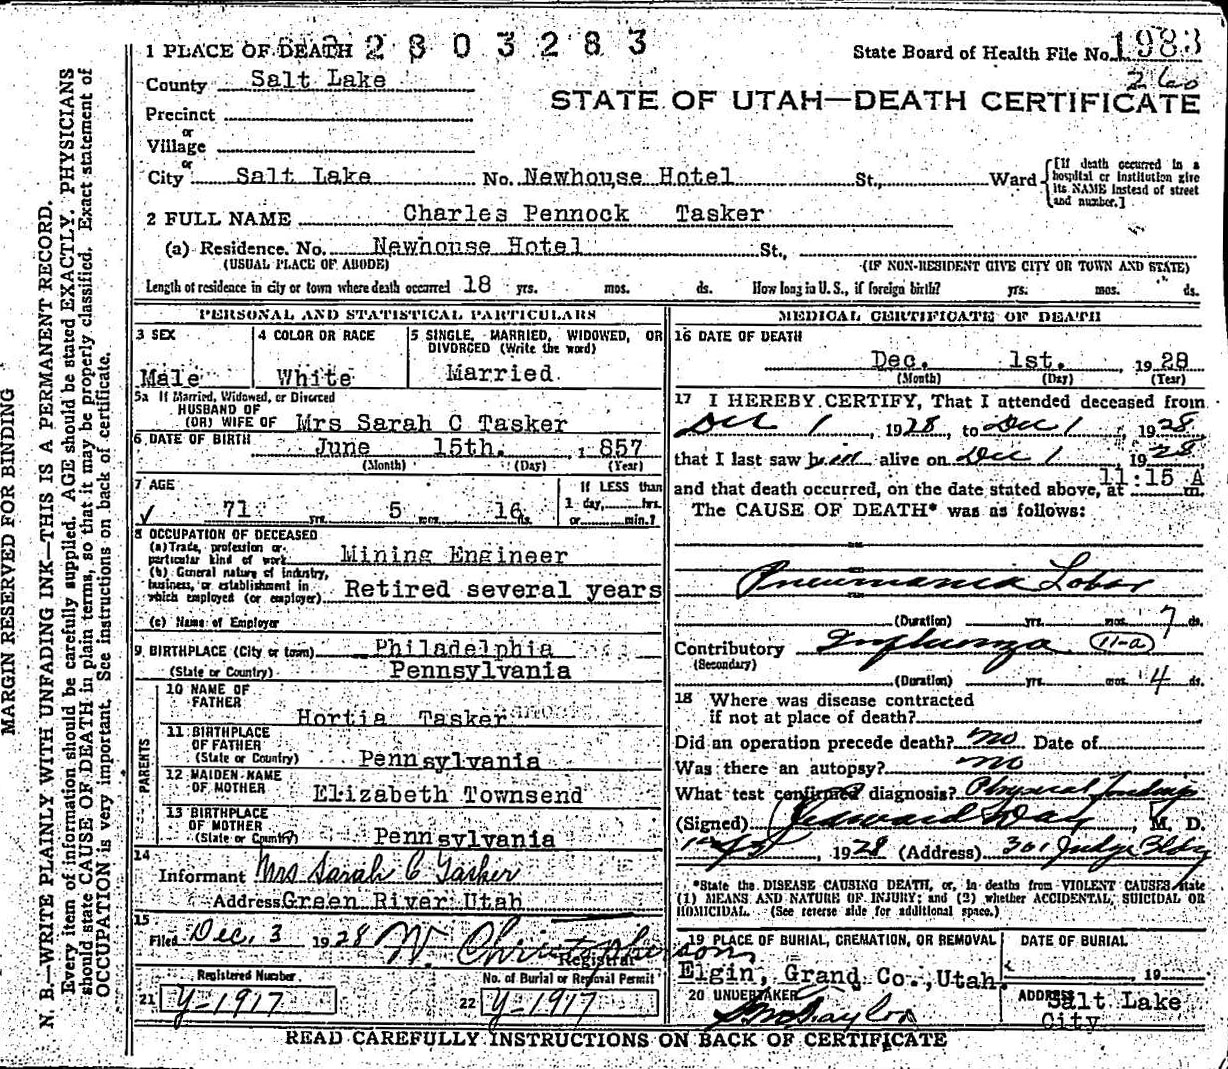 MARGIN RESERVED FOR BINDING
N. B.—WRITE PLAINLY WITH UNFADING INK—THIS IS A PERMANENT RECORD.
Every item of information should be carefully supplied. AGE should be stated EXACTLY. PHYSICIANS
should state CAUSE OF DEATH in plain terms, so that it may be properly classified. Exact statement of
OCCUPATION is very important. See instructions on back of certificate.
1 PLACE OF DEATH 2803283
State Board of Health File No. 1983
260
County Salt Lake
STATE OF UTAH—DEATH CERTIFICATE
Precinct
or
Village
or
City Salt Lake No. Newhouse Hotel St., Ward
[If death occurred in a
hospital or institution give
its NAME instead of street
and number.]
2 FULL NAME Charles Pennock Tasker
(a) Residence. No. Newhouse Hotel St.,
(USUAL PLACE OF ABODE) (IF NON-RESIDENT GIVE CITY OR TOWN AND STATE)
Length of residence in city or town where death occurred 18 yrs. mos. ds. How long in U. S., if foreign birth? yrs. mos. ds.
PERSONAL AND STATISTICAL PARTICULARS
3 SEX
Male
4 COLOR OR RACE
White
5 SINGLE, MARRIED, WIDOWED, OR
DIVORCED (Write the word)
Married
5a If Married, Widowed, or Divorced
HUSBAND OF
(OR) WIFE OF Mrs Sarah C Tasker
6 DATE OF BIRTH June 15th. 1857
(Month) (Day) (Year)
7 AGE
71 yrs. 5 mos. 16 ds.
If LESS than
1 day, hrs.
or min.?
8 OCCUPATION OF DECEASED
(a) Trade, profession or
particular kind of work Mining Engineer
(b) General nature of industry,
business, or establishment in
which employed (or employer) Retired several years
(c) Name of Employer
9 BIRTHPLACE (City or town) Philadelphia
(State or Country) Pennsylvania
PARENTS
10 NAME OF
FATHER
Hortia Tasker
11 BIRTHPLACE
OF FATHER
(State or Country) Pennsylvania
12 MAIDEN NAME
OF MOTHER
Elizabeth Townsend
13 BIRTHPLACE
OF MOTHER
(State or Country) Pennsylvania
14
Informant Mrs Sarah C Tasker
Address Green River Utah
15
Filed Dec. 3 1928 W. Christopherson
Registrar
Registered Number
21 Y-1917
No. of Burial or Removal Permit
22 Y-1917
MEDICAL CERTIFICATE OF DEATH
16 DATE OF DEATH
Dec. 1st. 1928
(Month) (Day) (Year)
17 I HEREBY CERTIFY, That I attended deceased from
Dec 1, 1928, to Dec 1, 1928,
that I last saw him alive on Dec 1, 1928,
and that death occurred, on the date stated above, at 11:15 A m.
The CAUSE OF DEATH* was as follows:
Pneumonia Lobar
(Duration) yrs. mos. 7 ds.
Contributory Influenza 11-a
(Secondary)
(Duration) yrs. mos. 4 ds.
18 Where was disease contracted
if not at place of death?
Did an operation precede death? no Date of
Was there an autopsy? no
What test confirmed diagnosis? Physical findings
(Signed) Day, M. D.
, 1928 (Address) 301 Judge Bldg
*State the DISEASE CAUSING DEATH, or, in deaths from VIOLENT CAUSES state
(1) MEANS AND NATURE OF INJURY; and (2) whether ACCIDENTAL, SUICIDAL OR
HOMICIDAL. (See reverse side for additional space.)
19 PLACE OF BURIAL, CREMATION, OR REMOVAL
Elgin, Grand Co., Utah.
DATE OF BURIAL
, 19
20 UNDERTAKER
Taylor
ADDRESS
Salt Lake
City
READ CAREFULLY INSTRUCTIONS ON BACK OF CERTIFICATE